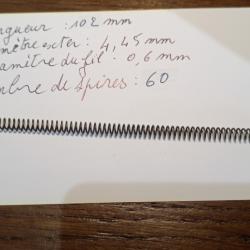 ngueur : 102 mm
mètre exter : 4,45 mm
amètre du fil : 0,6 mm
mbre de spires : 60